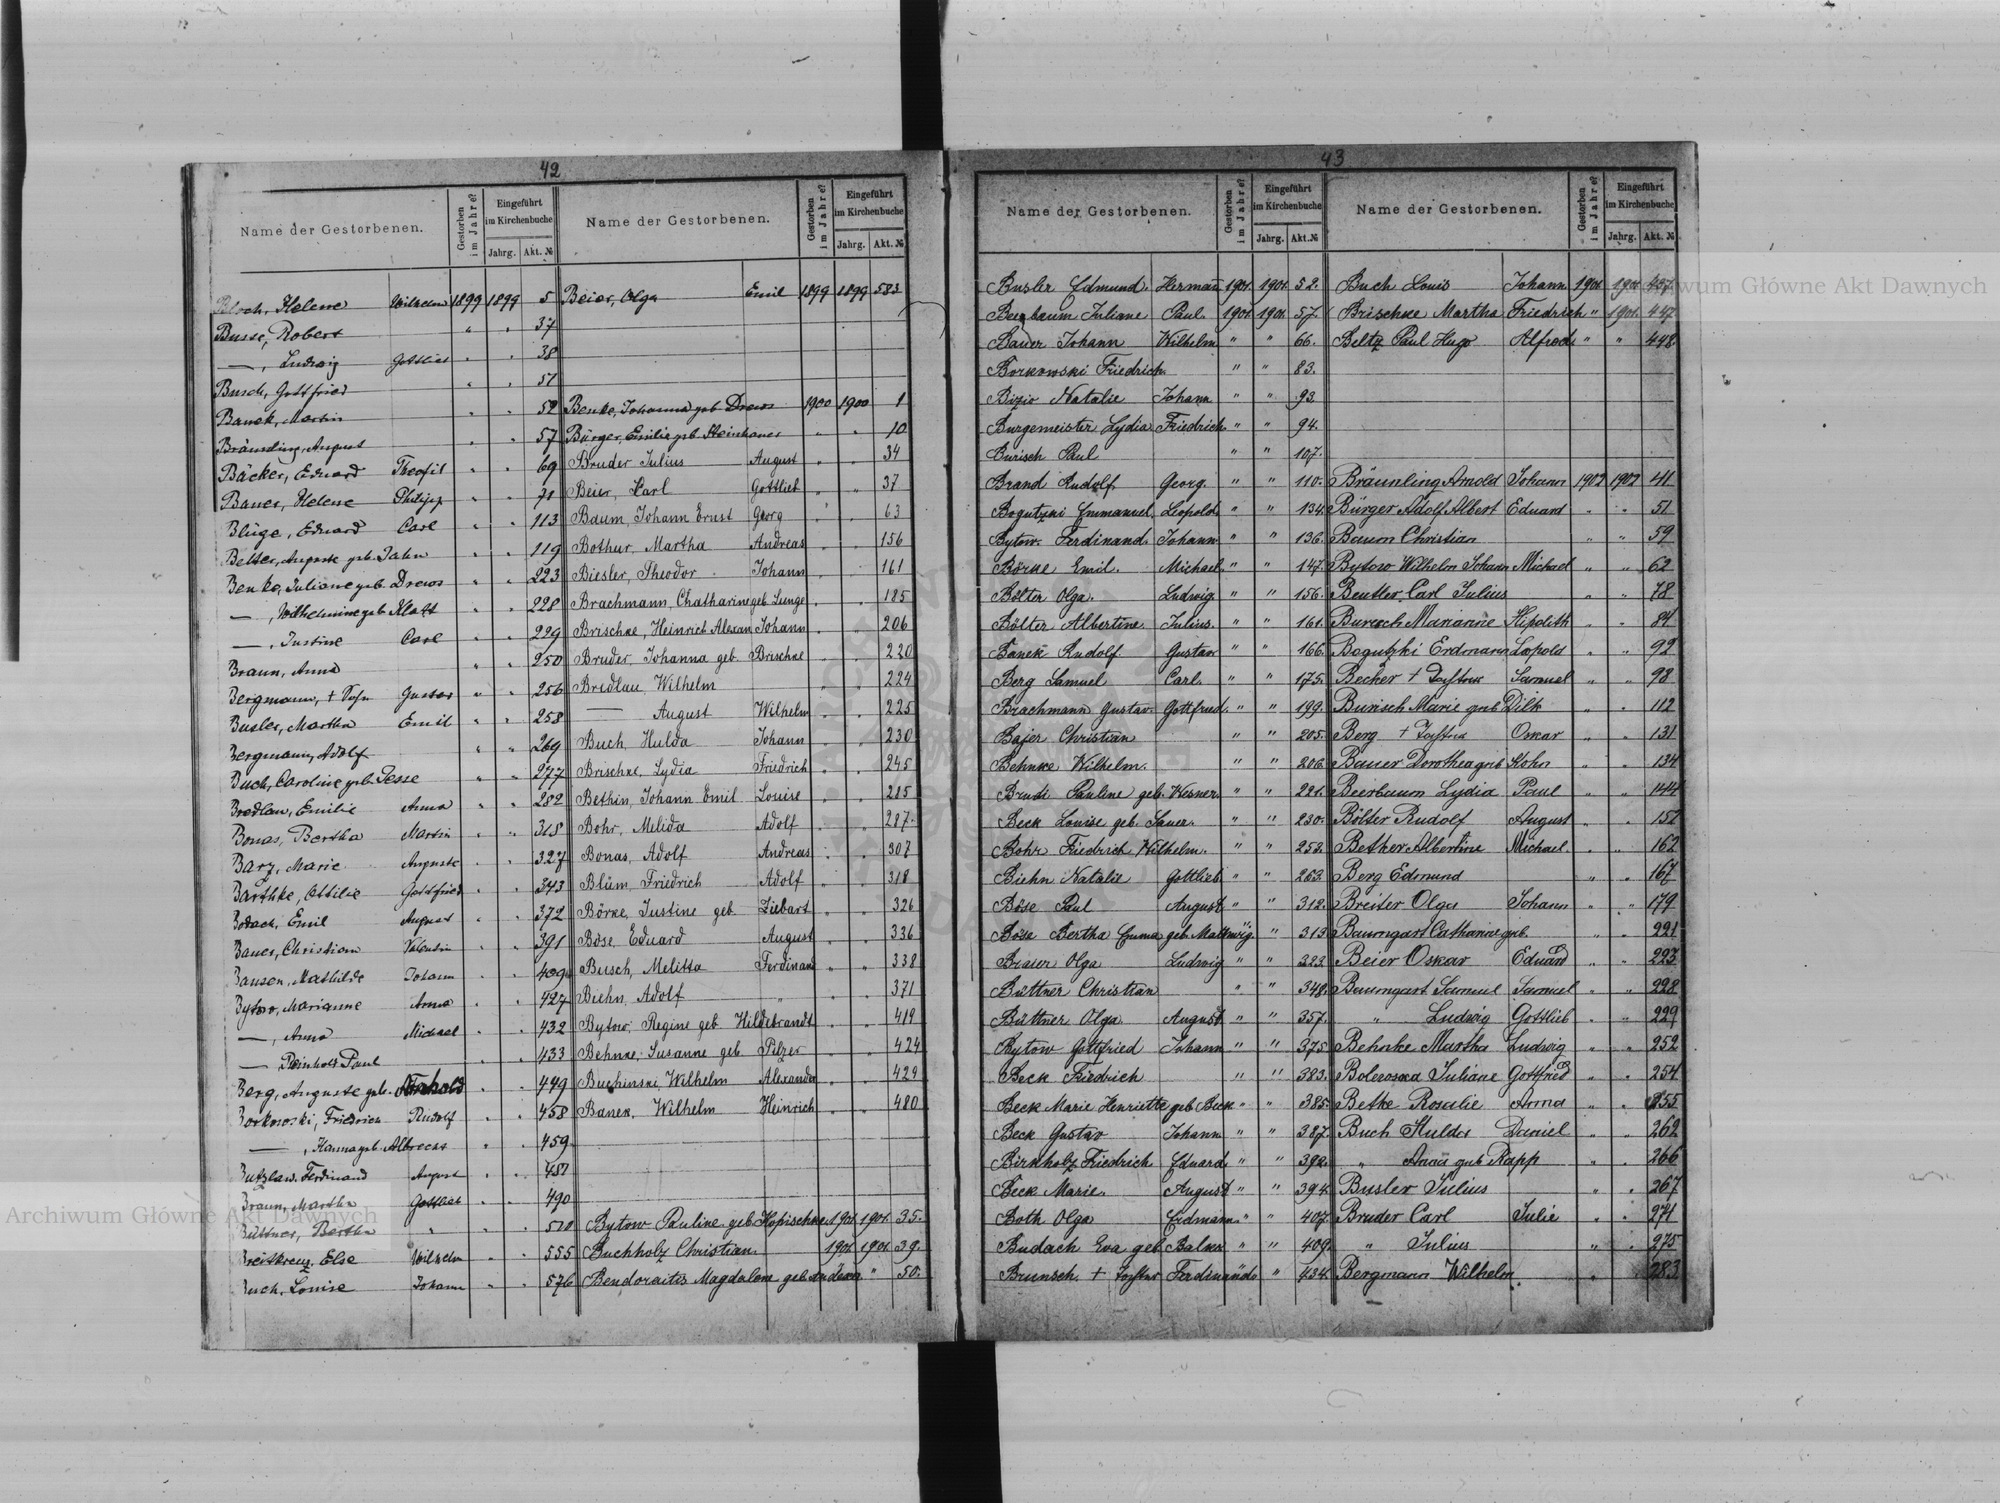 42
Name der Gestorbenen. Gestorben im Jahre? Eingeführt im Kirchenbuche Jahrg. Akt. №
Name der Gestorbenen. Gestorben im Jahre? Eingeführt im Kirchenbuche Jahrg. Akt. №
Helene Wilhelm 1899 1899 5
Busse, Robert " " 37
—, Ludwig Gottlieb " " 38
Busch, Gottfried " " 51
Banek, Martin " " 52
Bräunling, August " " 57
Bäcker, Eduard Theofil " " 69
Bauer, Helene Philipp " " 71
Bluge, Eduard Carl " " 113
Auguste geb. Jahn " " 119
Benke, Juliane geb. Drews " " 223
—, Wilhelmine geb. Klatt " " 228
—, Justine Carl " " 229
Braun, Anna " " 250
Bergmann, + Sohn Gustav " " 256
Busler, Martha Emil " " 258
Bergmann, Adolf " " 269
Buch, Caroline geb. Jesse " " 277
Bredlau, Emilie Anna " " 282
Bonas, Bertha Martin " " 318
Barz, Marie Auguste " " 327
Barthke, Ottilie Gottfried " " 343
Emil August " " 372
Bauer, Christian Valentin " " 391
Bansen, Mathilde Johann " " 409
Bytow, Marianne Anna " " 427
—, Anna Michael " " 432
—, Reinhold Paul " " 433
Berg, Auguste geb. " " 449
Borkowski, Friedrich Rudolf " " 458
—, Hanna geb. Albrecht " " 459
Butzlaw, Ferdinand August " " 487
Braun, Martha Gottlieb " " 490
Büttner, Bertha " " " 510
Breitkreuz, Else Wilhelm " " 555
Buch, Louise Johann " " 576
Beier, Olga Emil 1899 1899 583
Benke, Johanna geb. Drews 1900 1900 1
Bürger, Emilie geb. Steinhauer " " 10
Bruder Julius August " " 34
Beier, Karl Gottlieb " " 37
Baum, Johann Ernst Georg " " 63
Bothur, Martha Andreas " " 156
Biesler, Theodor Johann " " 161
Brachmann, Chatharine geb. Lunge " " 185
Brischke, Heinrich Alexan Johann " " 206
Bruder, Johanna geb. Brischke " " 220
Bredlau Wilhelm " " 224
— August Wilhelm " " 225
Buch, Hulda Johann " " 230
Brischke, Lydia Friedrich " " 245
Bethin, Johann Emil Louise " " 285
Bohr, Melida Adolf " " 287
Bonas, Adolf Andreas " " 307
Blüm, Friedrich Adolf " " 318
Börke, Justine geb. Ziebart " " 326
Böse, Eduard August " " 336
Busch, Melitta Ferdinand " " 338
Biehn, Adolf " " " 371
Bytow, Regine geb. Hildebrandt " " 419
Behnke, Susanne geb. Pilzer " " 424
Buchinski, Wilhelm Alexander " " 429
Banek, Wilhelm Heinrich " " 480
Bytow Pauline geb. Kopischke 1901. 1901. 35.
Buchholz Christian 1901 1901 39.
Bendoraitis Magdalene geb. " 50.
43
Name der Gestorbenen. Gestorben im Jahre? Eingeführt im Kirchenbuche Jahrg. Akt. №
Name der Gestorbenen. Gestorben im Jahre? Eingeführt im Kirchenbuche Jahrg. Akt. №
Busler Edmund Herman 1901. 1901. 52.
Juliane Paul. 1901 1901. 57.
Bauer Johann Wilhelm " " 66.
Borkowski Friedrich. " " 83.
Bizio Natalie Johann " " 93.
Burgemeister Lydia Friedrich " " 94.
Burisch Paul " " 107.
Brand Rudolf. Georg. " " 110.
Bogutzki Emmanuel. Leopold. " " 134.
Bytow. Ferdinand. Johann " " 136.
Börke Emil. Michael. " " 147.
Bölter Olga. Ludwig " " 156.
Bölter Albertine. Julius. " " 161.
Banek Rudolf. Gustav " " 166.
Berg Samuel Carl. " " 175.
Brachmann Gustav. Gottfried. " " 199.
Bajer Christian " " 205.
Behnke Wilhelm. " " 206.
Pauline geb. Wesner. " " 221.
Beck Louise geb. " " 230.
Bohr Friedrich Wilhelm. " " 253.
Biehn Natalie Gottlieb " " 263.
Böse Paul August " " 312.
Böse Bertha Emma geb. Mattwig. " 313.
Brauer Olga Ludwig " " 323.
Büttner Christian " " 348.
Büttner Olga. August " " 357.
Bytow Gottfried Johann " " 375.
Beck Friedrich " " 383.
Beck Marie Henriette geb. Beck " " 385.
Beck Gustav Johann " " 387.
Birkholz Friedrich Eduard " " 392.
Beck Marie. August " " 394.
Both Olga Erdmann. " " 407.
Budach Eva geb. " " 409.
Brunsch + Ferdinand " " 434.
Buch Louis Johann 1901 1901 437.
Brischke Martha Friedrich " 1901. 447.
Beltz Paul Hugo Alfred " " 448.
Bräunling Arnold Johann 1902 1902 41
Bürger Adolf Albert Eduard " " 51
Baum Christian " " 59
Bytow Wilhelm Johann Michael " " 62
Beutler Carl Julius " " 78
Marianne Hipolith " " 84
Bogutzki Erdmann Leopold " " 92
Becher + Samuel " " 98
Burisch Marie geb. Dilk " " 112
Berg + Oskar " " 131
Bauer Dorothea geb. Hohn " " 134
Beerbaum Lydia Paul " " 144
Bölter Rudolf August " " 152
Bether Albertine Michael. " " 162
Berg Edmund " " 167
Breiter Olga Johann " " 179
Baumgart Catharine geb. " " 221
Beier Oskar Eduard " " 223
Baumgart Samuel Samuel " " 228
" Ludwig Gottlieb " " 229
Behnke Martha Ludwig " " 252
Juliane Gottfried " " 254
Betke Rosalie Anna " " 255
Buch Hulda Daniel " " 262
" Anna geb. Rapp " " 266
Busler Julius " " 267
Bruder Carl Julie " " 271
" Julius " " 275
Bergmann Wilhelm " " 283
Archiwum Główne Akt Dawnych
Archiwum Główne Akt Dawnych